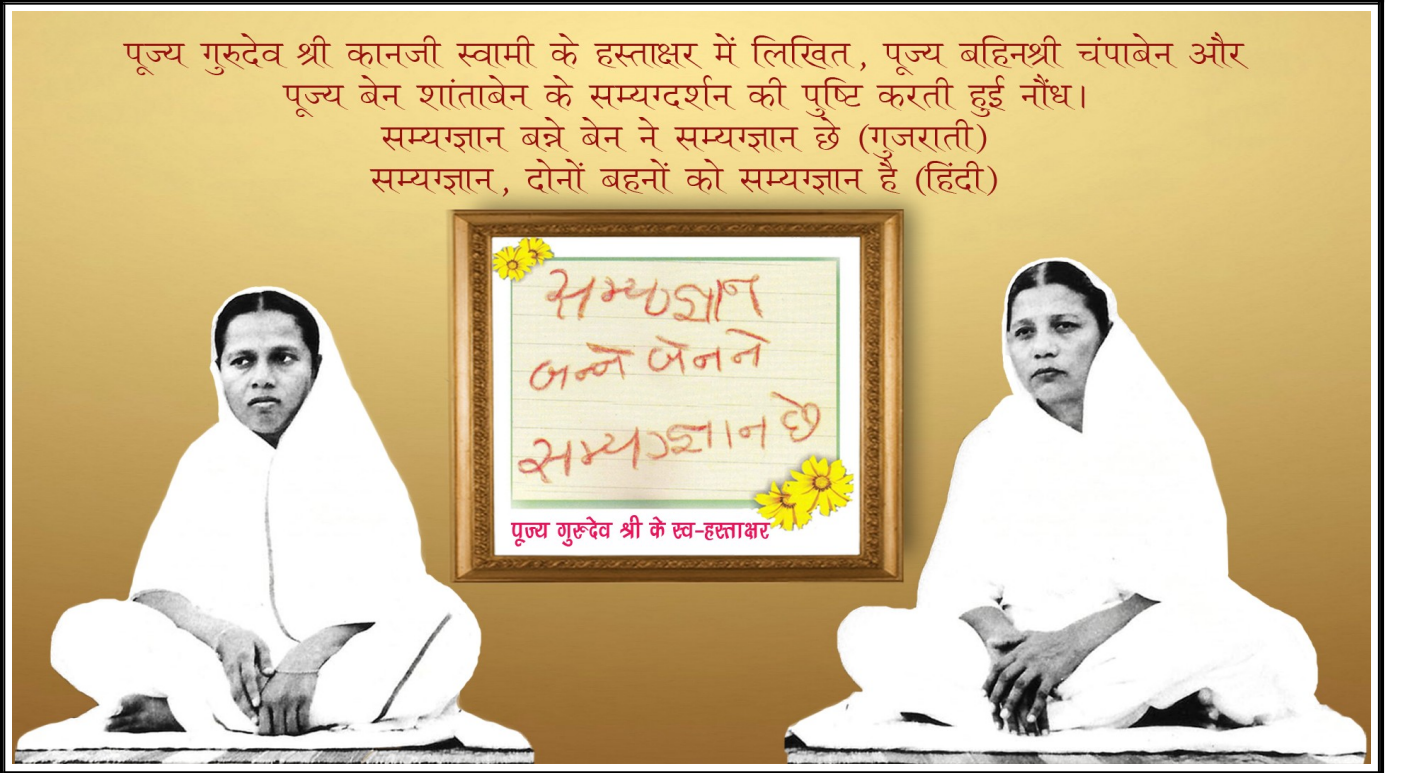 पूज्य गुरुदेव श्री कानजी स्वामी के हस्ताक्षर में लिखित, पूज्य बहिनश्री चंपाबेन और
पूज्य बेन शांताबेन के सम्यग्दर्शन की पुष्टि करती हुई नौंध।
सम्यग्ज्ञान बन्ने बेन ने सम्यग्ज्ञान छे (गुजराती)
सम्यग्ज्ञान, दोनों बहनों को सम्यग्ज्ञान है (हिंदी)
सम्यग्ज्ञान
બન્ને બેન ને
सम्यग्ज्ञान છે
पूज्य गुरूदेव श्री के स्व-हस्ताक्षर